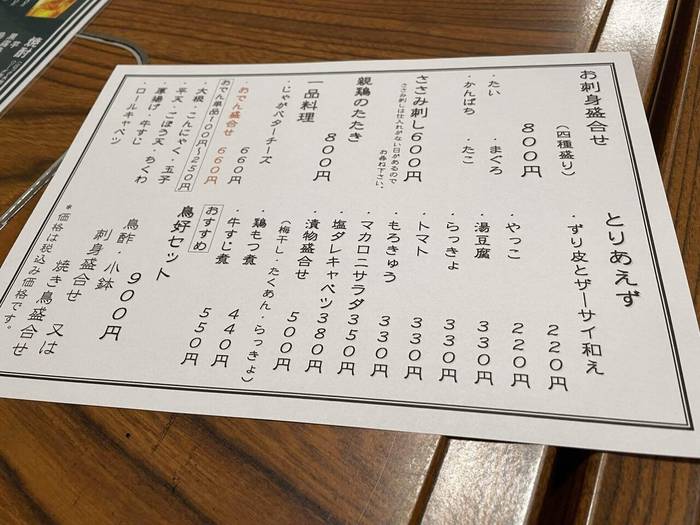 お刺身盛合せ
（四種盛り）
８００円
・たい　・まぐろ
・かんぱち　・たこ
ささみ刺し６００円
ささみ刺しは仕入れがない日があるので
お尋ね下さい。
親鶏のたたき
８００円
一品料理
・じゃがバターチーズ
６６０円
・おでん盛合せ　６６０円
おでん単品１００円～２５０円
・大根・こんにゃく・玉子
・平天・ごぼう天・ちくわ
・厚揚げ・牛すじ
・ロールキャベツ
とりあえず
・ずり皮とザーサイ和え
２２０円
・やっこ　２２０円
・湯豆腐　３３０円
・らっきょ　３３０円
・トマト　３３０円
・もろきゅう　３３０円
・マカロニサラダ３５０円
・塩ダレキャベツ３８０円
・漬物盛合せ　５００円
（梅干し・たくあん・らっきょ）
・鶏もつ煮　４４０円
・牛すじ煮　５５０円
おすすめ
鳥好セット
９００円
鳥酢・小鉢
刺身盛合せ　又は
焼き鳥盛合せ
＊価格は税込み価格です。
焼酎